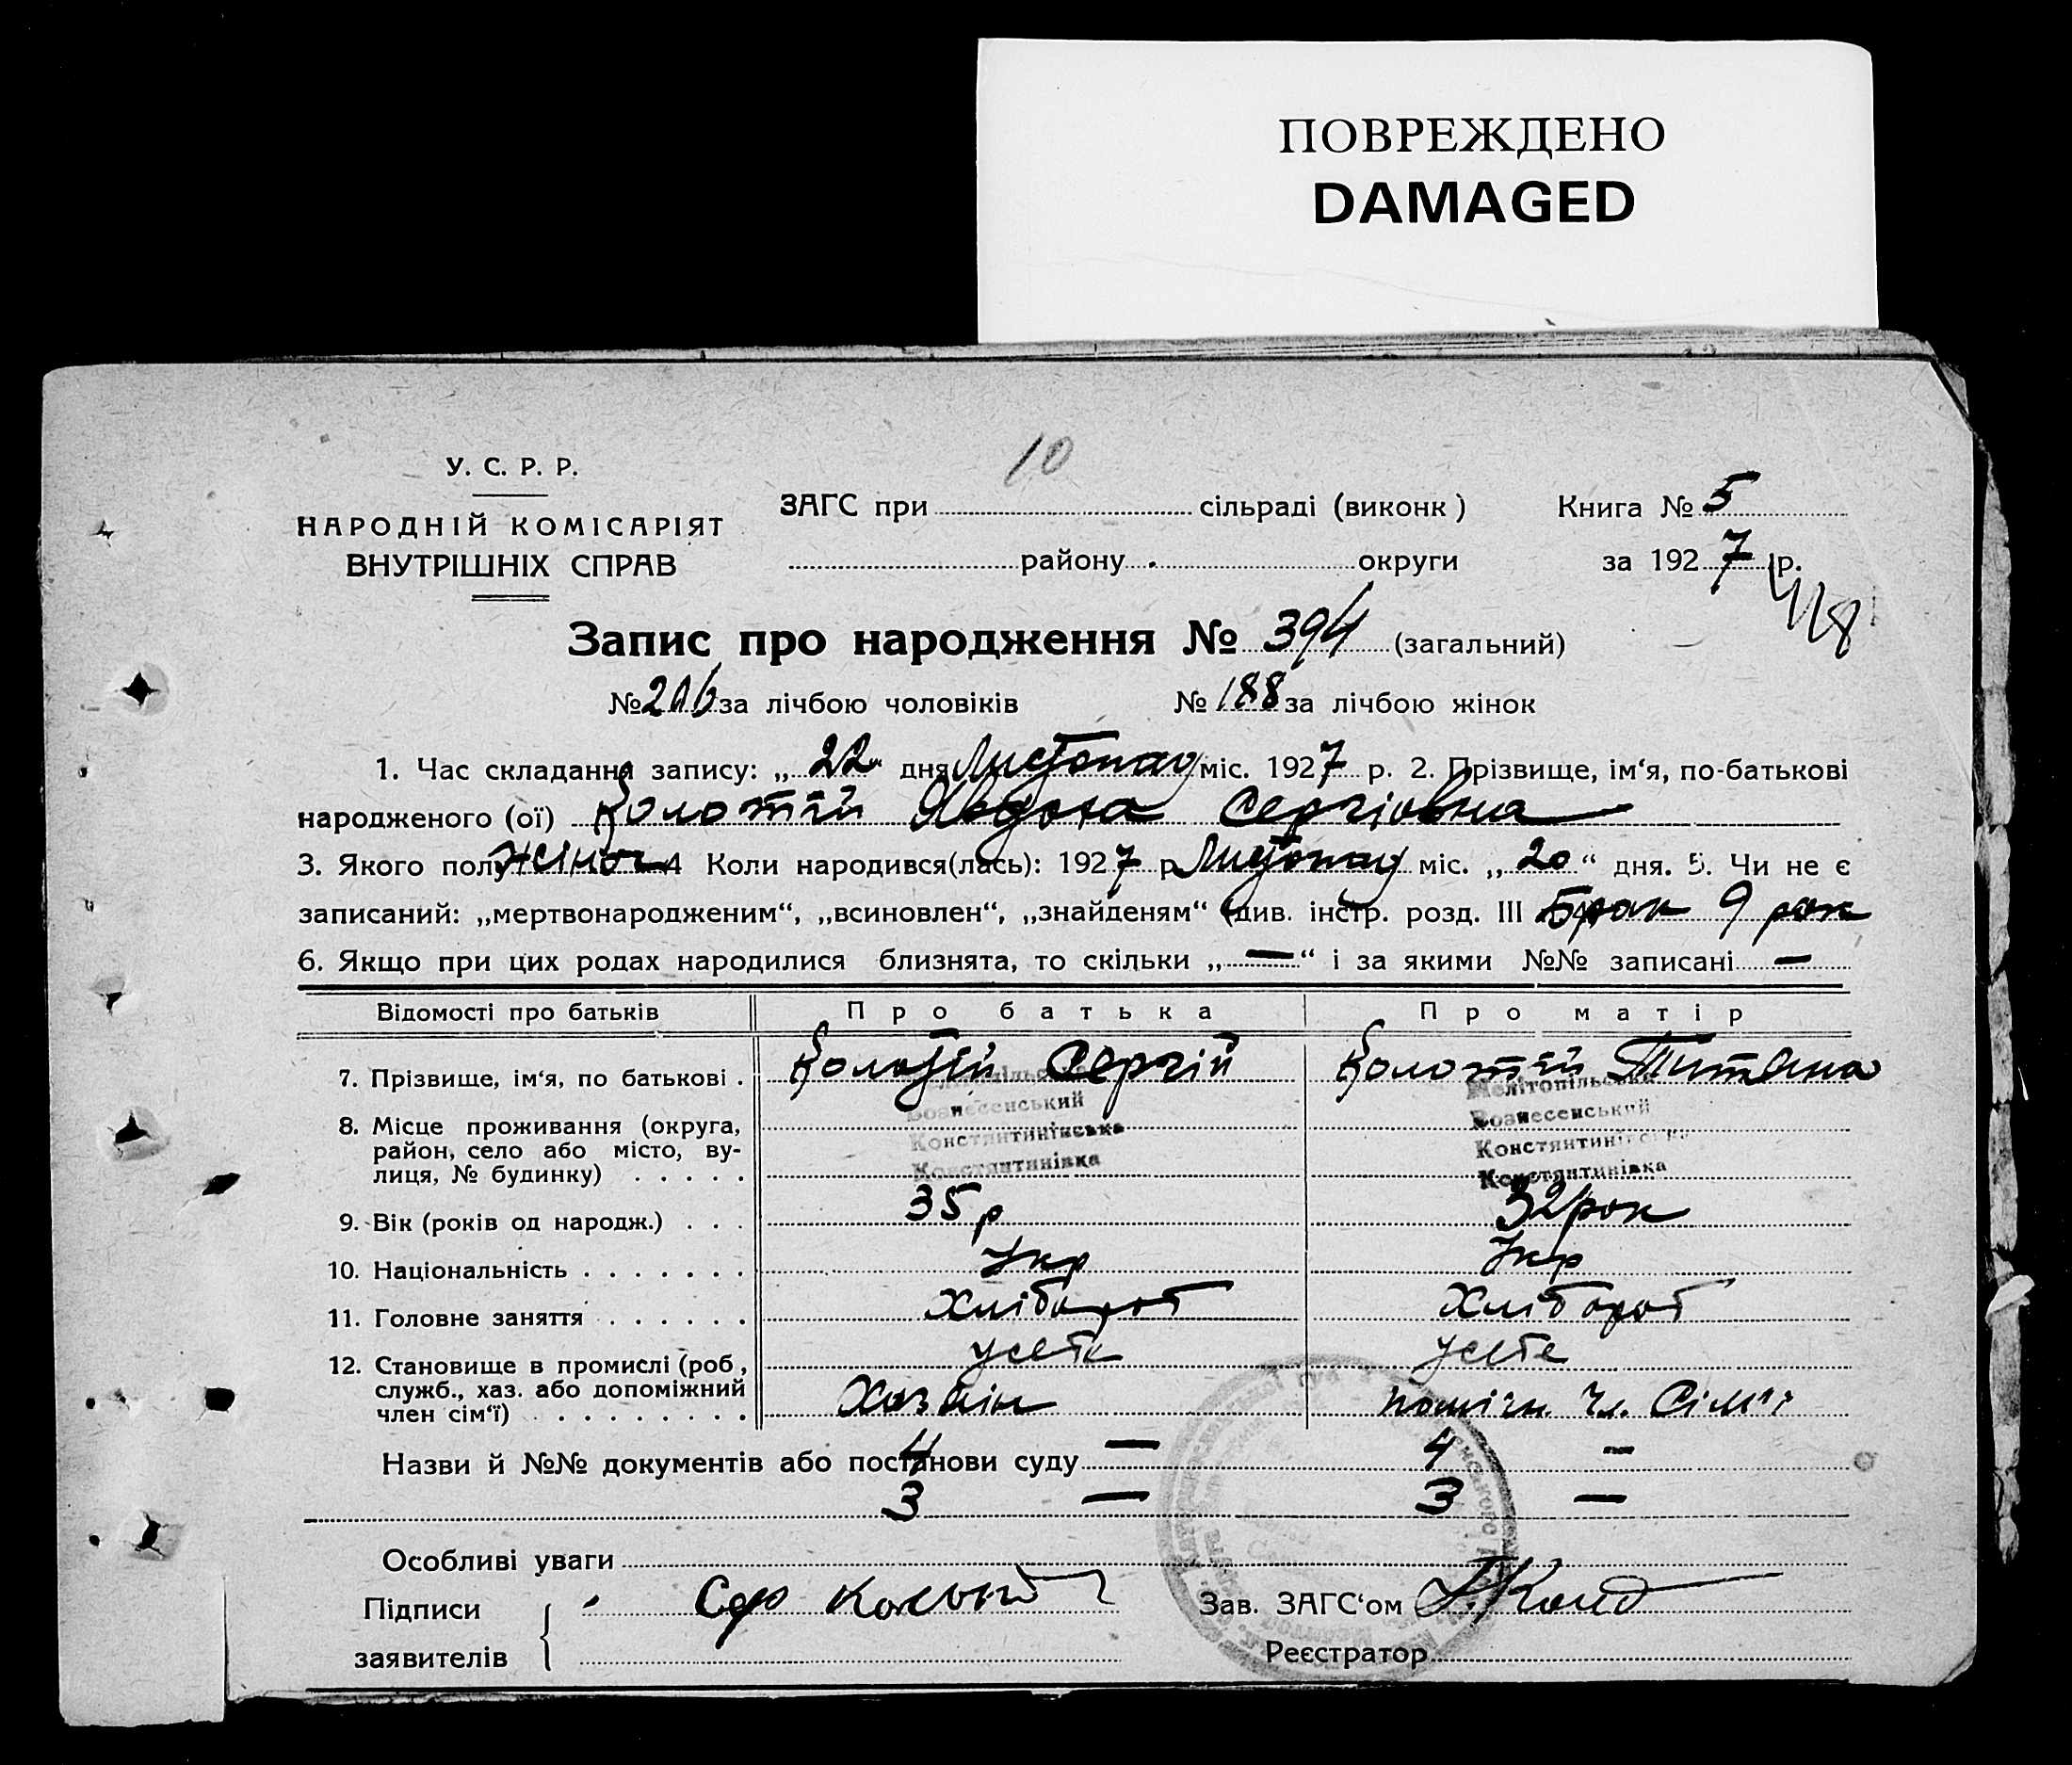 ПОВРЕЖДЕНО
DAMAGED
10
У. С. Р. Р.
НАРОДНІЙ КОМІСАРІЯТ
ВНУТРІШНІХ СПРАВ
ЗАГС при сільраді (виконк)
району округи
Книга № 5
за 1927 р.
418
Запис про народження № 394 (загальний)
№ 206 за лічбою чоловіків № 188 за лічбою жінок
1. Час складання запису: „22“ дня Листопад міс. 1927 р. 2. Прізвище, ім‘я, по-батькові
народженого (ої) Колотій Явдоха Сергіовна
3. Якого полу жіноч 4 Коли народився(лась): 1927 р Листопад міс. „20“ дня. 5. Чи не є
записаний: „мертвонародженим“, „всиновлен“, „знайденям“ (див. інстр. розд. III Брак 9 рок
6. Якщо при цих родах народилися близнята, то скільки „—“ і за якими №№ записані —
Відомості про батьків Про батька Про матір
7. Прізвище, ім‘я, по батькові . Колотій Сергій Колотій Титяна
Мелітопільська
8. Місце проживання (округа, район, село або місто, вулиця, № будинку) . . . . .
Вознесенський Вознесенський
Константинівська Константинівська
Константинівка Константинівка
9. Вік (років од народж.) . . . 35 р 32 рок
10. Національність . . . . . . . Укр Укр
11. Головне заняття . . . . . . Хлібороб Хлібороб
12. Становище в промислі (роб, служб., хаз. або допоміжний член сім‘ї) . . . . . . . . .
Хазяін помічн. чл. Сімї
Назви й №№ документів або постанови суду 4 — 4 —
3 — 3 —
Особливі уваги
Підписи
заявителів
Сер
Зав. ЗАГС‘ом
Реєстратор